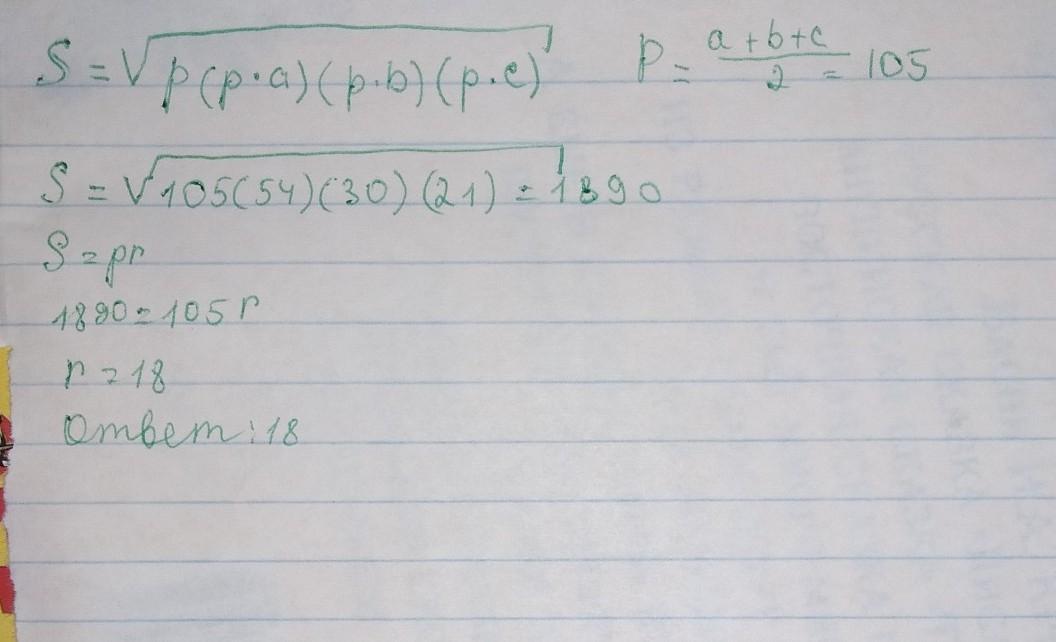 S = √p(p·a)(p·b)(p·c) p = a+b+c / 2 = 105
S = √105(54)(30)(21) = 1890
S = pr
1890 = 105 r
r = 18
Ответ: 18